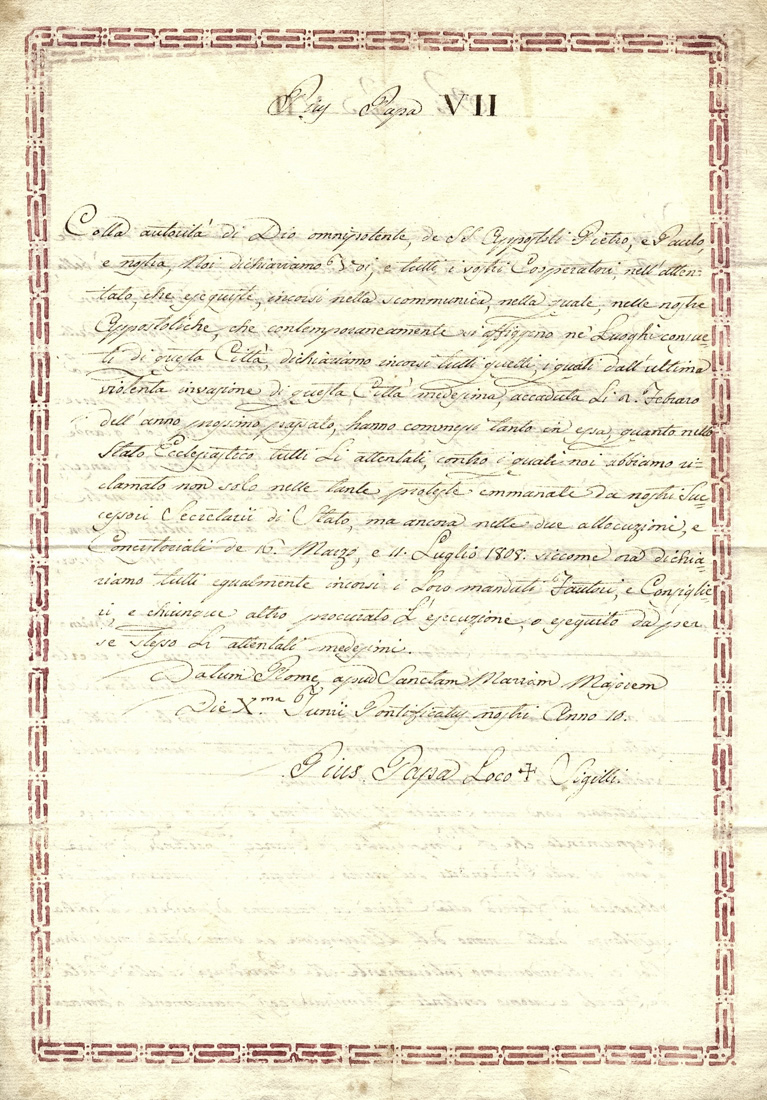 Pius Papa VII
Colla autorità di Dio omnipotente, de SS Appostoli Pietro, e Paulo,
e nostra, Noi dichiariamo Voi, e tutti i vostri Cooperatori, nell'atten-
tato, che eseguiste, incorsi nella scommunica, nella quale, nelle nostre
Appostoliche, che contemporaneamente si affiggono ne' Luoghi consue-
ti di questa Città, dichiariamo incorsi tutti quelli, i quali dall'ultima
violenta invasione di questa Città medesima, accaduta li 2. Febraro
dell'anno prossimo passato, hanno commessi tanto in essa, quanto nello
Stato Ecclesiastico tutti li attentati, contro i quali noi abbiamo re-
clamato non solo nelle tante proteste emmanate da nostri Suc-
cessori Secretarii di Stato, ma ancora nelle due allocuzioni, e
Concistoriali de 16. Marzo, e 11. Luglio 1808. siccome ora dichia-
riamo tutti egualmente incorsi i loro mandati Fautori, e Consiglie-
ri e chiunque altro procurato l'esecuzione, o eseguito da per
se stesso li attentati medesimi.
Datum Rome, apud Sanctam Mariam Majorem
Die X.ma Junii Pontificatus nostri Anno 10.
Pius Papa Loco ✝ Sigilli.